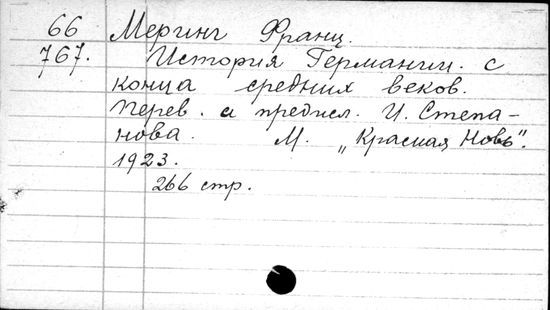 66 Меринг Франц.
767. История Германии. с
конца средних веков.
Перев. и предисл. И. Степа-
нова. М. „Красная Новь".
1923.
266 стр.